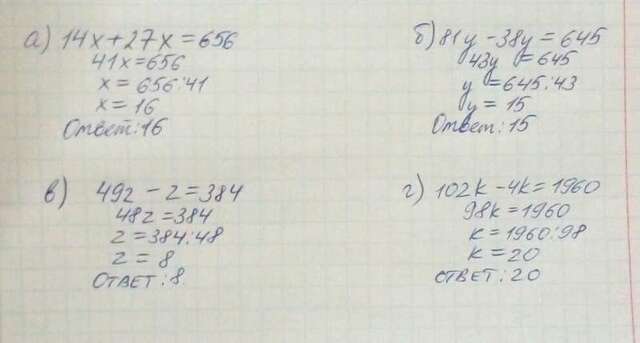 а) 14x+27x=656
41x=656
x=656:41
x=16
Ответ:16
б) 81y-38y=645
43y=645
y=645:43
y=15
Ответ:15
в) 49z-z=384
48z=384
z=384:48
z=8
Ответ:8
г) 102k-4k=1960
98k=1960
k=1960:98
k=20
ответ:20